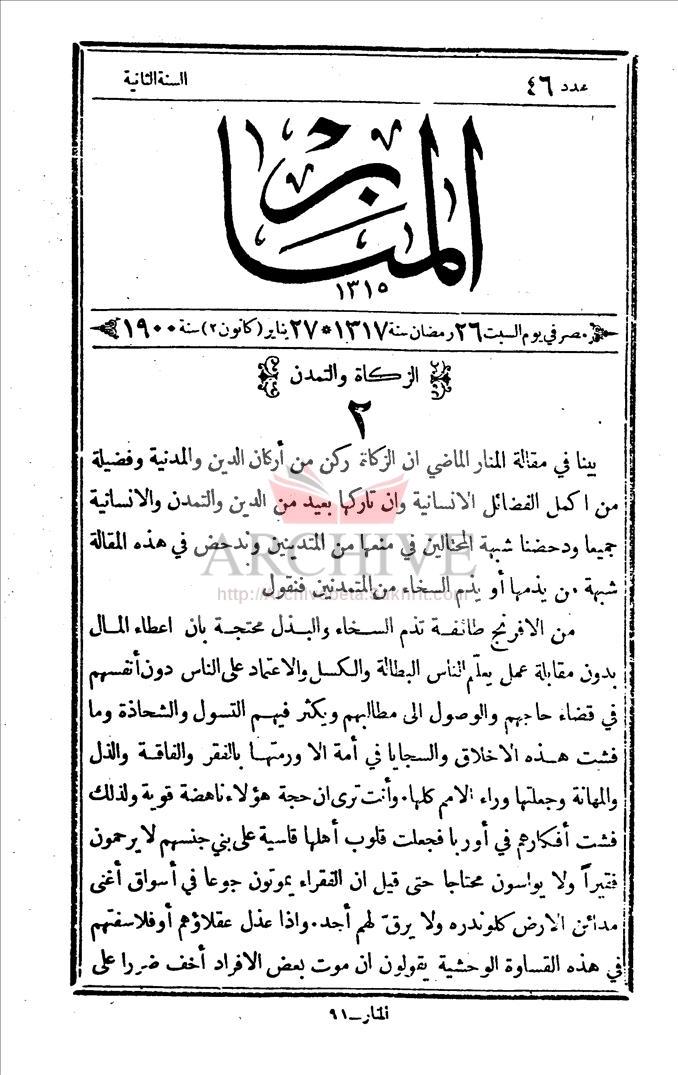 عدد ٤٦
السنة الثانية
المنار
١٣١٥
مصر في يوم السبت ٢٦ رمضان سنة ١٣١٧ * ٢٧ يناير (كانون ٢) سنة ١٩٠٠
الزكاة والتمدن
٢
بينا في مقالة المنار الماضي ان الزكاة ركن من أركان الدين والمدنية وفضيلة
من اكمل الفضائل الانسانية وان تاركها بعيد من الدين والتمدن والانسانية
جميعا ودحضنا شبهة المحتالين في منعها من المتدينين وندحض في هذه المقالة
شبهة من يذمها أو يذم السخاء من المتمدنين فنقول
من الافرنج طائفة تذم السخاء والبذل محتجة بان اعطاء المال
بدون مقابلة عمل يعلّم الناس البطالة والكسل والاعتماد على الناس دون أنفسهم
في قضاء حاجهم والوصول الى مطالبهم ويكثر فيهم التسول والشحاذة وما
فشت هذه الاخلاق والسجايا في أمة الا ورمتها بالفقر والفاقة والذل
والمهانة وجعلتها وراء الامم كلها. وأنت ترى ان حجة هؤلاء ناهضة قوية ولذلك
فشت أفكارهم في أوربا فجعلت قلوب أهلها قاسية على بني جنسهم لا يرحمون
فقيراً ولا يواسون محتاجا حتى قيل ان الفقراء يموتون جوعا في أسواق أغنى
مدائن الارض كلوندره ولا يرقّ لهم أحد. واذا عذل عقلاؤهم أو فلاسفتهم
في هذه القساوة الوحشية يقولون ان موت بعض الافراد أخف ضررا على
المنار ـ ٩١
ARCHIVE